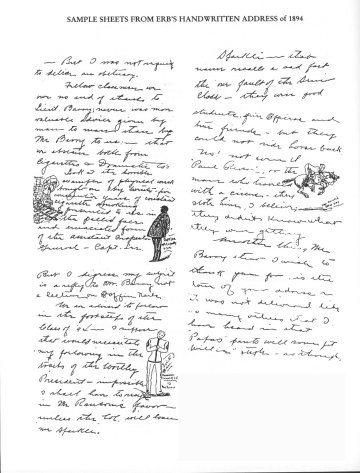 SAMPLE SHEETS FROM ERB'S HANDWRITTEN ADDRESS of 1894
— But I was not going
to deliver an obituary.
Fellow classmen we
owe no end of thanks to
Lieut. Barry; never was more
valuable advice given by
man to man than by
Mr Barry to us; — that
on
cigarettes &
Look at the horrible
examples of physical wreck
brought on by
years of constant
cigarette smoking
presented to us in
the
and emaciated form
of the
General — Capt.
But I digress my subject
is a reply to Mr. Barry not
a lecture on Coffin Nails.
in the footsteps of the
Class of 94 — I suppose
that would necessitate
my following in the
tracks of the worthy
President — impossible
I shall have to resign
in Mr Ransom's favor —
unless the Col. will loan
me Sparkle.
Sparkle — that
name recalls a sad fact
the one fault of the Senior
Class — they were good
students, fine Officers and
true friends — but they
could not ride horse back
Yes! not even if
"Paul
man who traveled
with a circus — they
stole him, I believe
they didn't know what
they were getting
Another thing, Mr
Barry that I wish to
thank you for is the
tone of your address —
it was not delivered like
so many others that I
have heard in that
"Papas' pants will soon fit
Willie" style — as though,